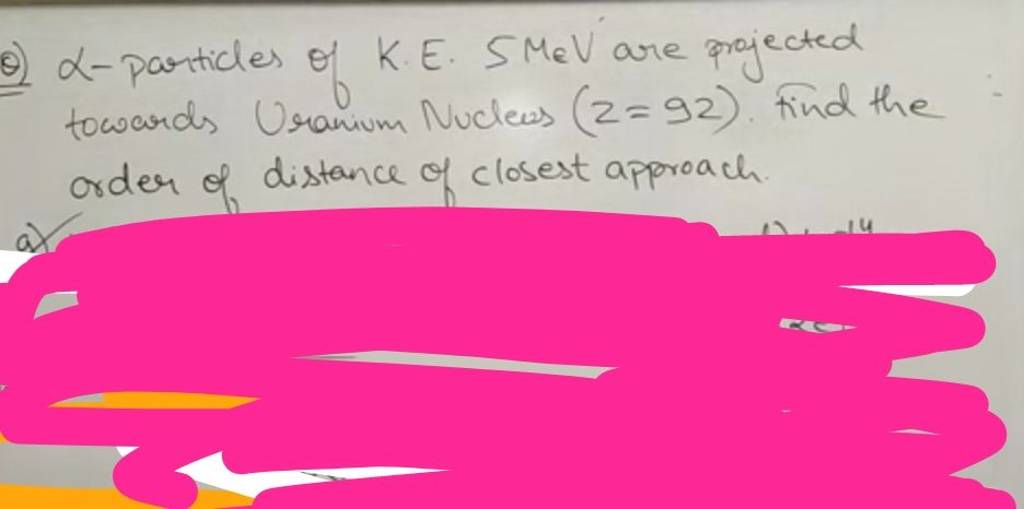 Q) α-particles of K.E. 5 MeV are projected
towards Uranium Nucleus (Z=92). Find the
order of distance of closest approach.
a)